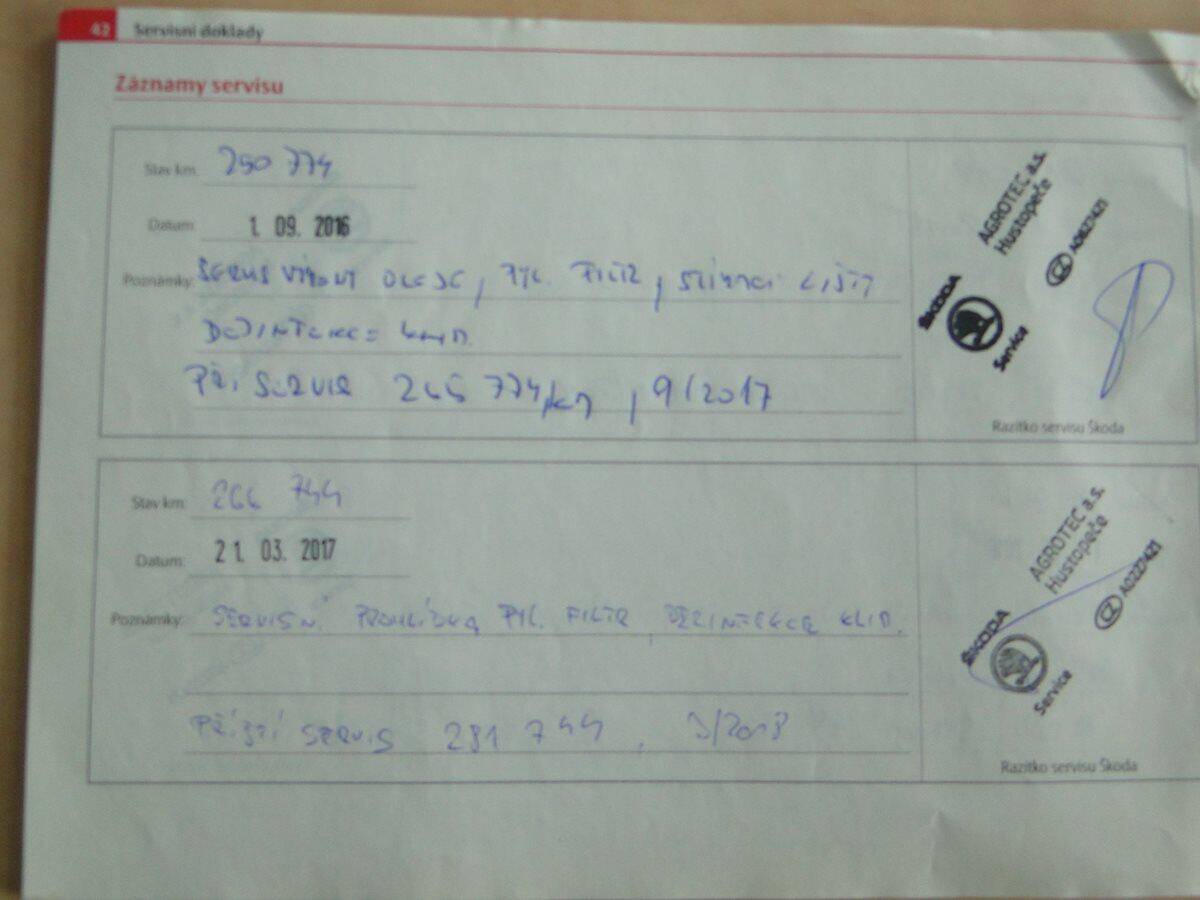 42 Servisní doklady
Záznamy servisu
Stav km: 250 774
Datum: 1. 09. 2016
Poznámky: SERVIS VÝMĚNY OLEJE, PYL. FILTR, STÍRACÍ LIŠTY
DEZINFEKCE KLID.
PŘÍ. SERVIS 265 774 km, 9/2017
AGROTEC a.s.
Hustopeče
CZ A0827421
ŠKODA
Service
Razítko servisu Škoda
Stav km: 266 744
Datum: 21. 03. 2017
Poznámky: SERVISNÍ PROHLÍDKA PYL. FILTR, DEZINFEKCE KLID.
PŘÍŠTÍ SERVIS 281 744, 3/2018
AGROTEC a.s.
Hustopeče
CZ
ŠKODA
Service
Razítko servisu Škoda